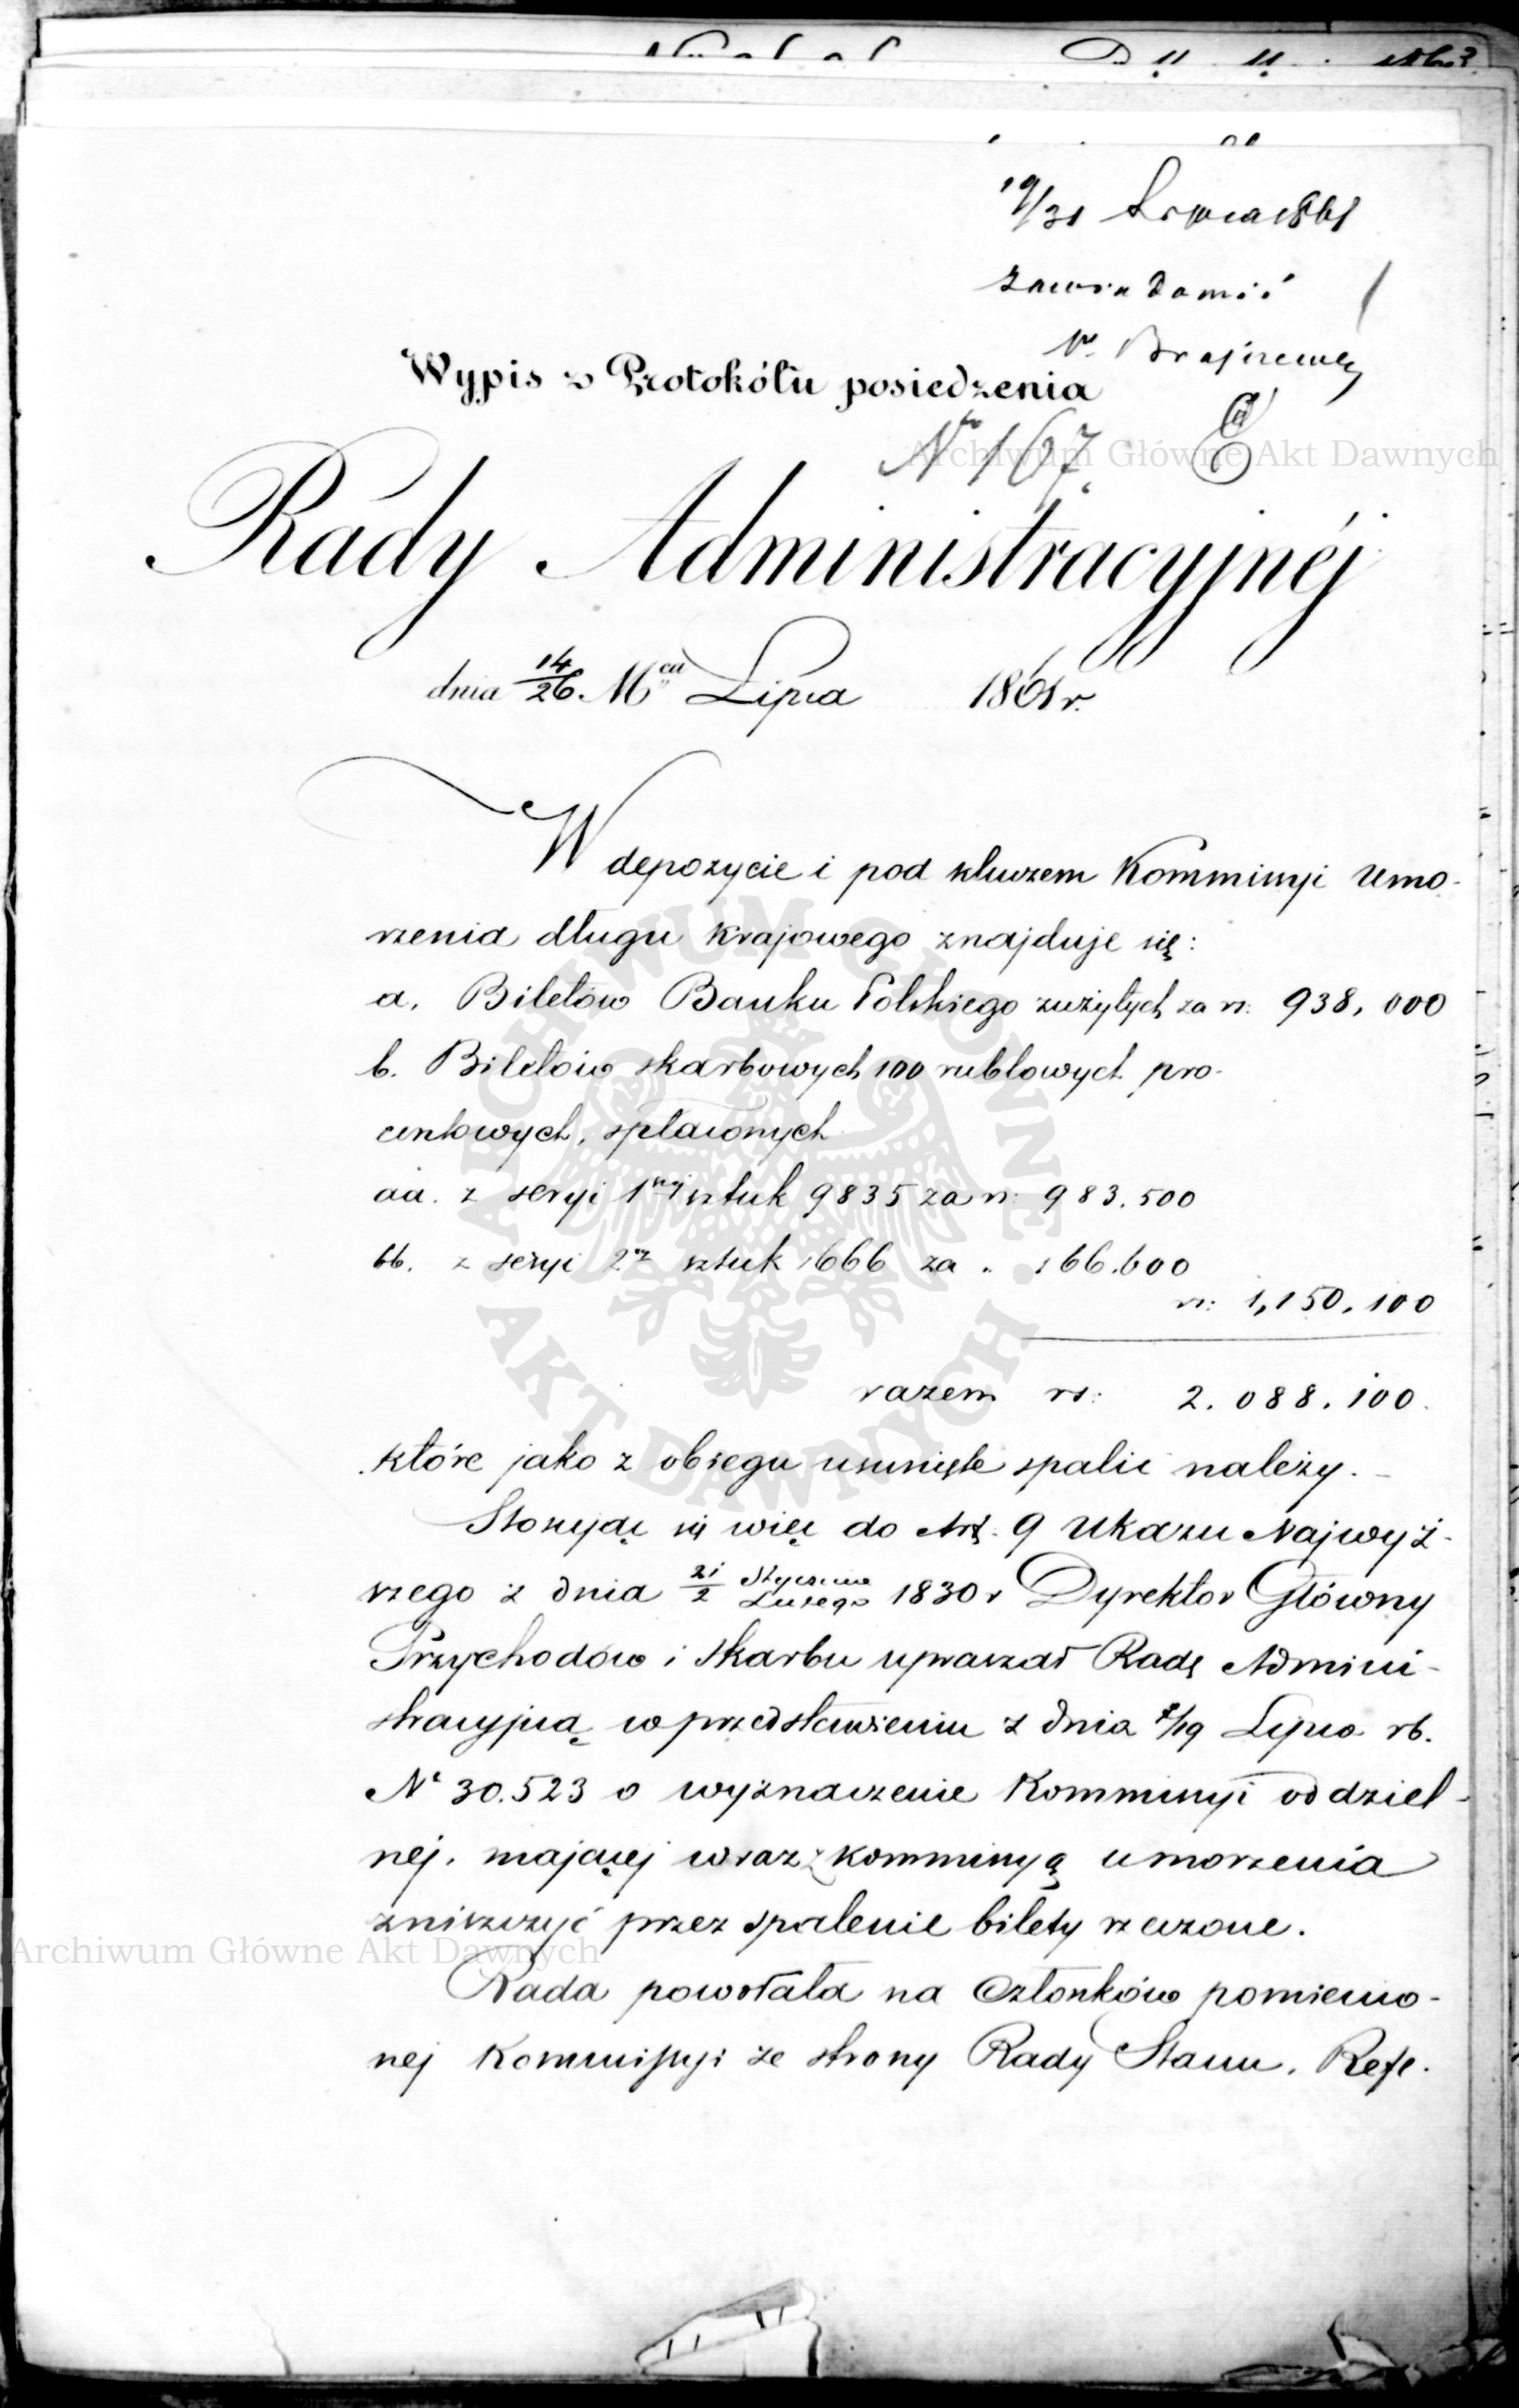 19/31 Lipca 1861
zawiadomić
Wypis z Protokółu posiedzenia
N° 167.
Rady Administracyjnéj
dnia 14/26 Mca Lipca 1861 r.
W depozycie i pod kluczem Kommissyi Umo-
rzenia długu krajowego znajduje się:
a. Biletów Banku Polskiego zużytych za rs: 938,000
b. Biletów skarbowych 100 rublowych pro-
centowych, spłaconych
aa. z seryi 1ej sztuk 9835 za rs: 983.500
bb. z seryi 2ej sztuk 1666 za „ 166.600
rs: 1,150.100
razem rs: 2.088.100.
które jako z obiegu usunięte spalić należy. –
Stosując się więc do Art. 9 Ukazu Najwyż-
szego z dnia 21/2 Stycznia/Lutego 1830 r Dyrektor Główny
Przychodów i Skarbu upraszał Radę Admini-
stracyjną w przedstawieniu z dnia 7/19 Lipca rb.
N° 30.523 o wyznaczenie Kommissyi oddziel-
nej, mającej wraz z kommissyą umorzenia
zniszczyć przez spalenie bilety rzeczone.
Rada powołała na Członków pomienio-
nej Kommissyi ze strony Rady Stanu, Refe-
Archiwum Główne Akt Dawnych
Archiwum Główne Akt Dawnych
ARCHIWUM GŁÓWNE AKT DAWNYCH